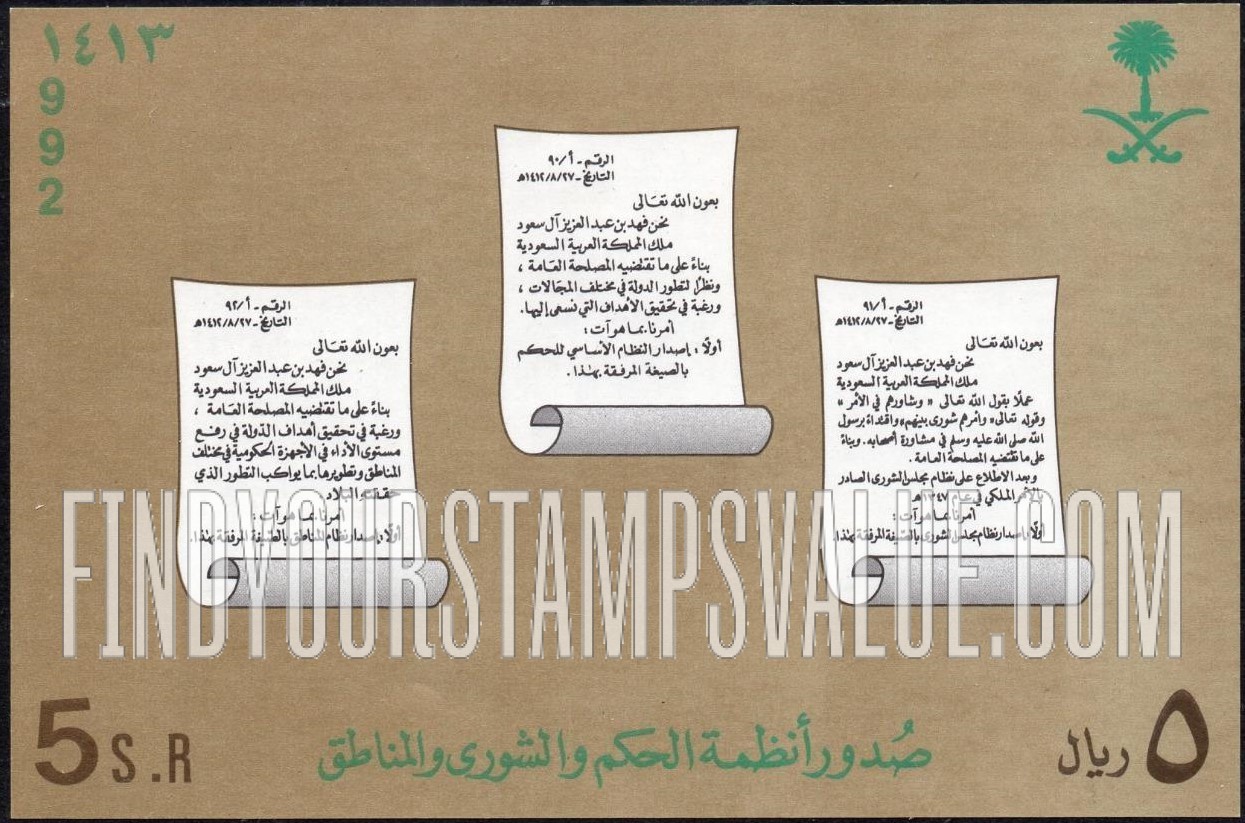 ١٤١٣
992
الرقم - أ/٩٠
التاريخ - ١٤١٢/٨/٢٧هـ
بعون الله تعالى
نحن فهد بن عبد العزيز آل سعود
ملك المملكة العربية السعودية
بناءً على ما تقتضيه المصلحة العامة ،
ونظرًا لتطور الدولة في مختلف المجالات ،
ورغبة في تحقيق الأهداف التي نسعى إليها.
أمرنا بما هو آت :
أولًا : إصدار النظام الأساسي للحكم
بالصيغة المرفقة بهذا .
الرقم - أ/٩١
التاريخ - ١٤١٢/٨/٢٧هـ
بعون الله تعالى
نحن فهد بن عبد العزيز آل سعود
ملك المملكة العربية السعودية
عملًا بقول الله تعالى « وشاورهم في الأمر »
وقوله تعالى « وأمرهم شورى بينهم » واقتداءً برسول
الله صلى الله عليه وسلم في مشاورة أصحابه . وبناءً
على ما تقتضيه المصلحة العامة .
وبعد الاطلاع على نظام مجلس الشورى الصادر
بالأمر الملكي في عام ١٣٤٧هـ
أمرنا بما هو آت :
أولًا : إصدار نظام مجلس الشورى بالصيغة المرفقة بهذا .
الرقم - أ/٩٢
التاريخ - ١٤١٢/٨/٢٧هـ
بعون الله تعالى
نحن فهد بن عبد العزيز آل سعود
ملك المملكة العربية السعودية
بناءً على ما تقتضيه المصلحة العامة ،
ورغبة في تحقيق أهداف الدولة في رفع
مستوى الأداء في الأجهزة الحكومية في مختلف
المناطق وتطويرها بما يواكب التطور الذي
حققته البلاد
أمرنا بما هو آت :
أولًا : إصدار نظام المناطق بالصيغة المرفقة بهذا .
FINDYOURSTAMPSVALUE.COM
صُدور أنظمة الحكم والشورى والمناطق
5 S.R
٥ ريال